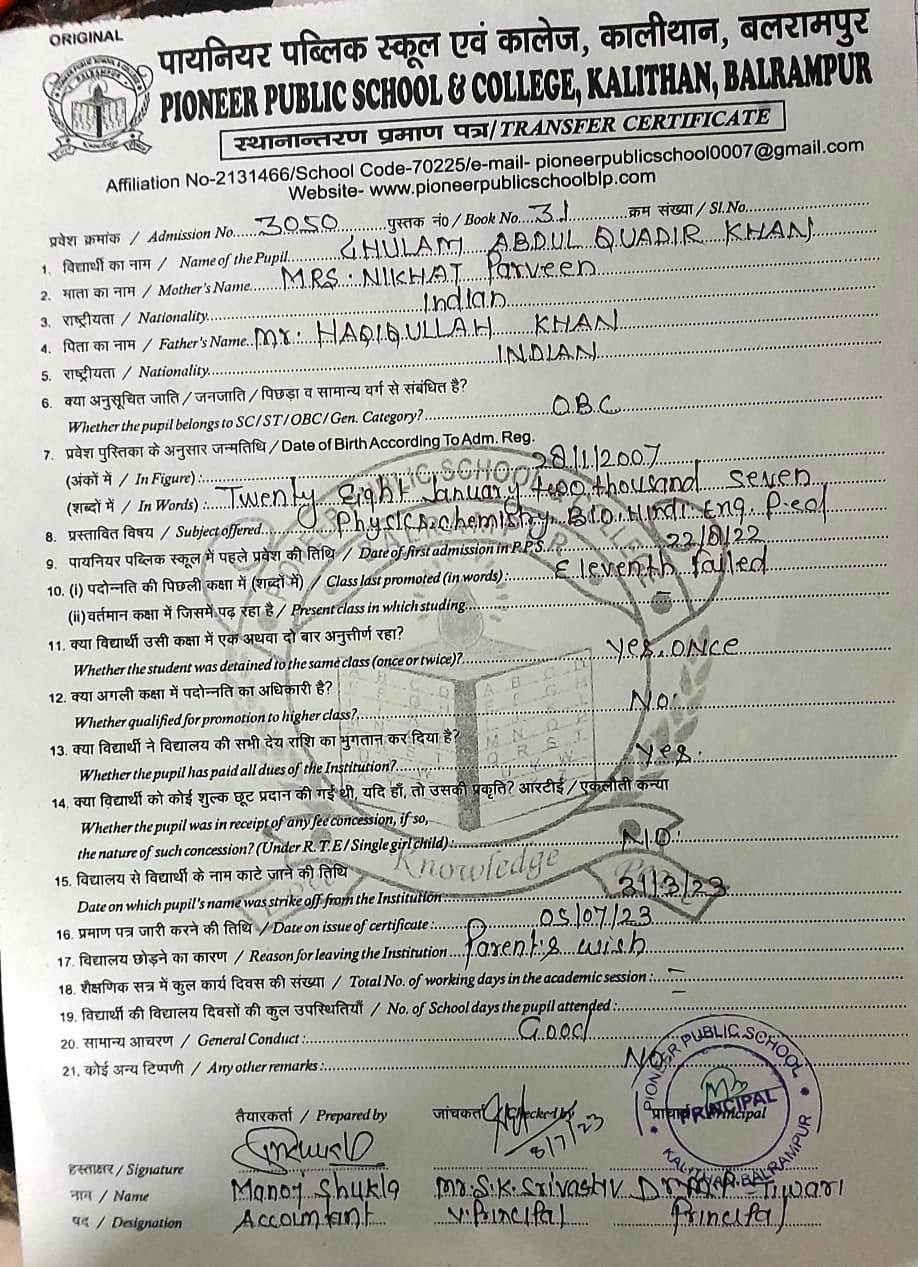 ORIGINAL
पायनियर पब्लिक स्कूल एवं कालेज, कालीथान, बलरामपुर
PIONEER PUBLIC SCHOOL & COLLEGE, KALITHAN, BALRAMPUR
स्थानान्तरण प्रमाण पत्र/TRANSFER CERTIFICATE
Affiliation No-2131466/School Code-70225/e-mail- pioneerpublicschool0007@gmail.com
Website- www.pioneerpublicschoolblp.com
प्रवेश क्रमांक / Admission No. 3050 पुस्तक नं0 / Book No. 31 क्रम संख्या / Sl.No.
1. विद्यार्थी का नाम / Name of the Pupil GHULAM ABDUL QUADIR KHAN
2. माता का नाम / Mother's Name MRS. NIKHAT Parveen
3. राष्ट्रीयता / Nationality Indian
4. पिता का नाम / Father's Name Mr. HAQIQULLAH KHAN
5. राष्ट्रीयता / Nationality INDIAN
6. क्या अनुसूचित जाति / जनजाति / पिछड़ा व सामान्य वर्ग से संबंधित है?
Whether the pupil belongs to SC/ST/OBC/Gen. Category? O.B.C
7. प्रवेश पुस्तिका के अनुसार जन्मतिथि / Date of Birth According To Adm. Reg.
(अंकों में / In Figure) : 28/1/2007
(शब्दों में / In Words) : Twenty Eight January two thousand seven
8. प्रस्तावित विषय / Subject offered Physics, Chemistry, BIO. Hindi. Eng. P.ed
9. पायनियर पब्लिक स्कूल में पहले प्रवेश की तिथि / Date of first admission in P.P.S. 22/8/22
10. (i) पदोन्नति की पिछली कक्षा में (शब्दों में) / Class last promoted (in words) : Eleventh failed
(ii) वर्तमान कक्षा में जिसमें पढ़ रहा है / Present class in which studing –
11. क्या विद्यार्थी उसी कक्षा में एक अथवा दो बार अनुत्तीर्ण रहा?
Whether the student was detained to the same class (once or twice)? yes, ONCE
12. क्या अगली कक्षा में पदोन्नति का अधिकारी है?
Whether qualified for promotion to higher class? No.
13. क्या विद्यार्थी ने विद्यालय की सभी देय राशि का भुगतान कर दिया है?
Whether the pupil has paid all dues of the Institution? yes.
14. क्या विद्यार्थी को कोई शुल्क छूट प्रदान की गई थी, यदि हाँ, तो उसकी प्रकृति? आरटीई / एकलौती कन्या
Whether the pupil was in receipt of any fee concession, if so,
the nature of such concession? (Under R.T.E/Single girl child) : NO.
15. विद्यालय से विद्यार्थी के नाम काटे जाने की तिथि
Date on which pupil's name was strike off from the Institution 31/3/23
16. प्रमाण पत्र जारी करने की तिथि / Date on issue of certificate : 05/07/23
17. विद्यालय छोड़ने का कारण / Reason for leaving the Institution Parent's wish
18. शैक्षणिक सत्र में कुल कार्य दिवस की संख्या / Total No. of working days in the academic session : –
19. विद्यार्थी की विद्यालय दिवसों की कुल उपस्थितियाँ / No. of School days the pupil attended : –
20. सामान्य आचरण / General Conduct : Good
21. कोई अन्य टिप्पणी / Any other remarks : No
PIONEER PUBLIC SCHOOL
PRINCIPAL
KALITHAN, BALRAMPUR
तैयारकर्ता / Prepared by जांचकर्ता / Checked by प्राचार्य / Principal
8/7/23
हस्ताक्षर / Signature
नाम / Name Manoj Shukla Mr. S.K. Srivastav Dr. Tiwari
पद / Designation Accountant V. Principal Principal
Knowledge